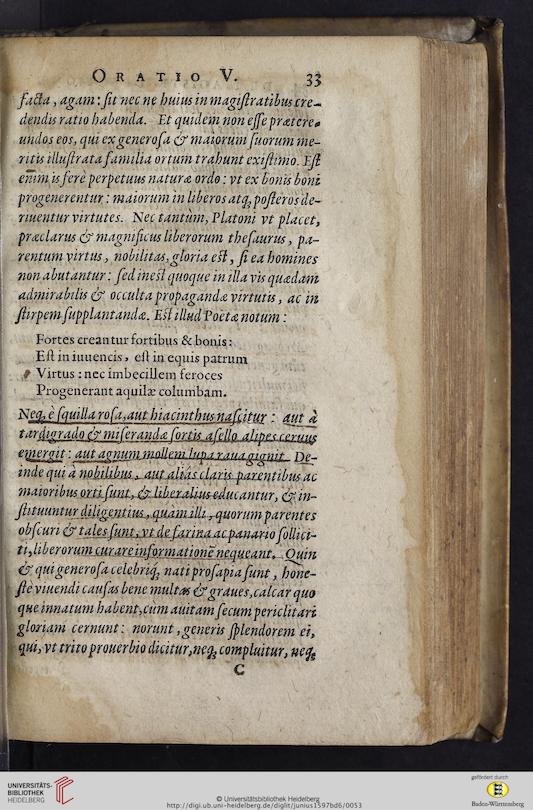 ORATIO V. 33
facta, agam: sit nec ne huius in magistratibus cre-
dendis ratio habenda. Et quidem non esse prætere-
undos eos, qui ex generosa & maiorum suorum me-
ritis illustrata familia ortum trahunt existimo. Est
enim is ferè perpetuus naturæ ordo: vt ex bonis boni
progenerentur: maiorum in liberos atq; posteros de-
riuentur virtutes. Nec tantùm, Platoni vt placet,
præclarus & magnificus liberorum thesaurus, pa-
rentum virtus, nobilitas, gloria est, si ea homines
non abutantur: sed inest quoque in illa vis quædam
admirabilis & occulta propagandæ virtutis, ac in
stirpem supplantandæ. Est illud Poëtæ notum:
Fortes creantur fortibus & bonis:
Est in iuuencis, est in equis patrum
Virtus: nec imbecillem feroces
Progenerant aquilæ columbam.
Neq; è squilla rosa, aut hiacinthus nascitur: aut à
tardigrado & miserandæ sortis asello alipes ceruus
emergit: aut agnum mollem lupa raua gignit. De-
inde qui à nobilibus, aut aliàs claris parentibus ac
maioribus orti sunt, & liberalius educantur, & in-
stituuntur diligentius, quàm illi, quorum parentes
obscuri & tales sunt, vt de farina ac panario sollici-
ti, liberorum curare informationē nequeant. Quin
& qui generosa celebriq; nati prosapia sunt, hone-
stè viuendi causas bene multas & graues, calcar quo
que innatum habent, cùm auitam secum periclitari
gloriam cernunt: norunt, generis splendorem ei,
qui, vt trito prouerbio dicitur, neq; compluitur, neq;
C
UNIVERSITÄTS-
BIBLIOTHEK
HEIDELBERG
© Universitätsbibliothek Heidelberg
http://digi.ub.uni-heidelberg.de/diglit/junius1597bd6/0053
gefördert durch
Baden-Württemberg